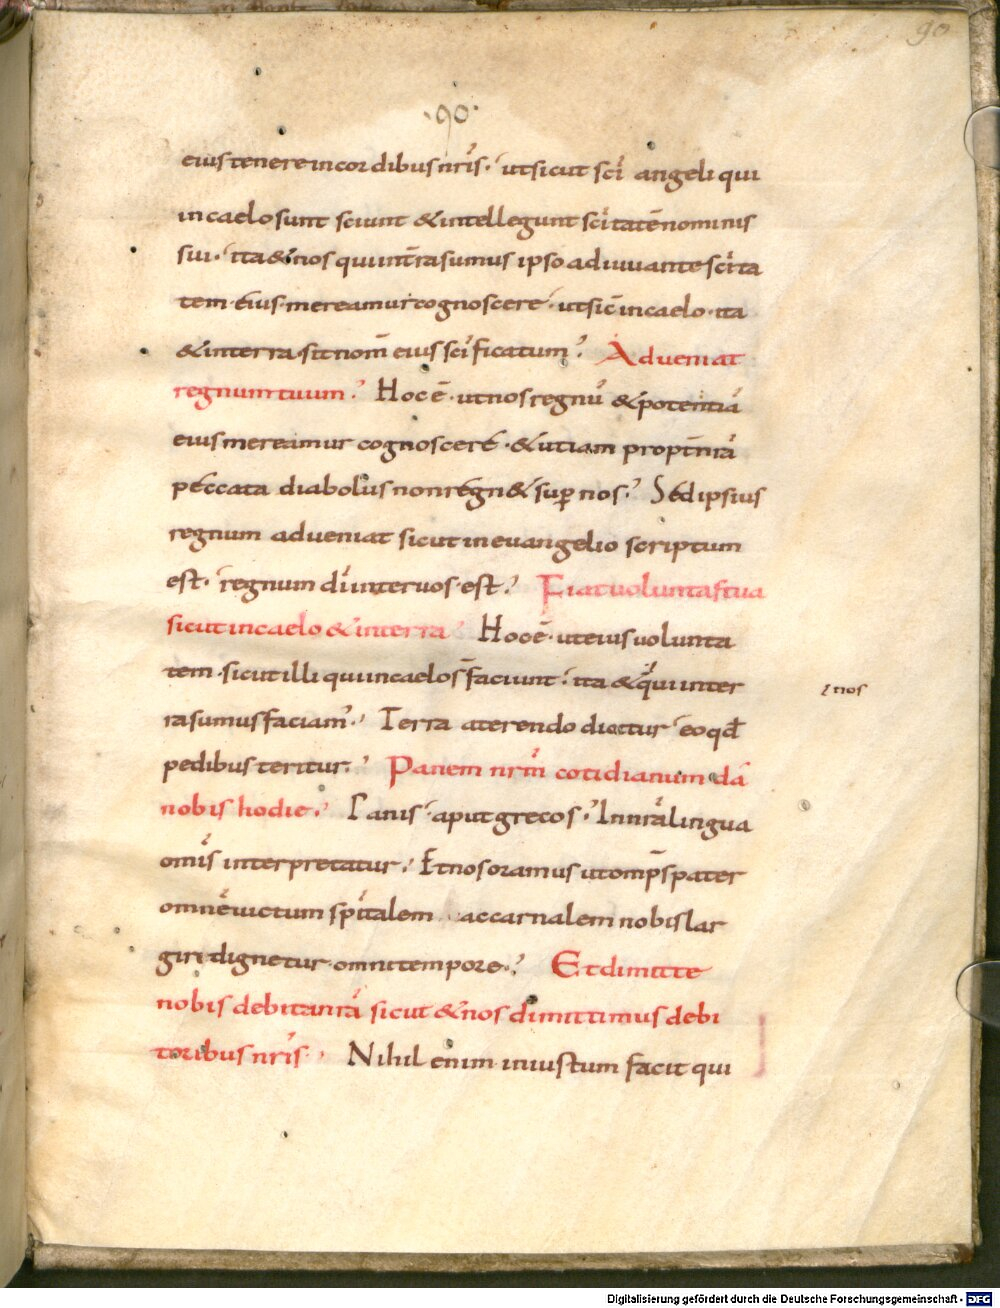 90
·90·
eius tenere in cordibus nr̄is· ut sicut sc̄i angeli qui
in caelo sunt sciunt & intellegunt sc̄itatē nominis
sui· ita & nos qui in t̄ra sumus ipso adiuuante sc̄ita
tem eius mereamur cognoscere· ut sic̄ in caelo· ita
& in terra sit nom̄ eius sc̄ificatum· Adueniat
regnum tuum· Hoc ē· ut nos regnū & potentiā
eius mereamur cognoscere· & ut iam propt̄ nr̄a
peccata diabolus non regn& sup̱ nos· Sed ipsius
regnum adueniat sicut in euangelio scriptum
est· regnum dī inter uos est· Fiat uoluntas tua
sicut in caelo & in terra Hoc ē· ut eius uolunta
tem· sicut illi qui in caelo s̄ faciunt· ita & qui in ter
ꝫ nos
ra sumus faciam̄· Terra a terendo dicitur eo qđ
pedibus teritur· Panem nr̄m cotidianum dā
nobis hodie· Panis· aput grecos· In nr̄a lingua
omīs interpretatur· Et nos oramus ut omp̄s pater
omnē uictum sp̄italem ac carnalem nobis lar
giri dignetur omni tempore· Et dimitte
nobis debita nr̄a sicut & nos dimittimus debi
toribus nr̄is· Nihil enim iniustum facit qui
Digitalisierung gefördert durch die Deutsche Forschungsgemeinschaft - DFG